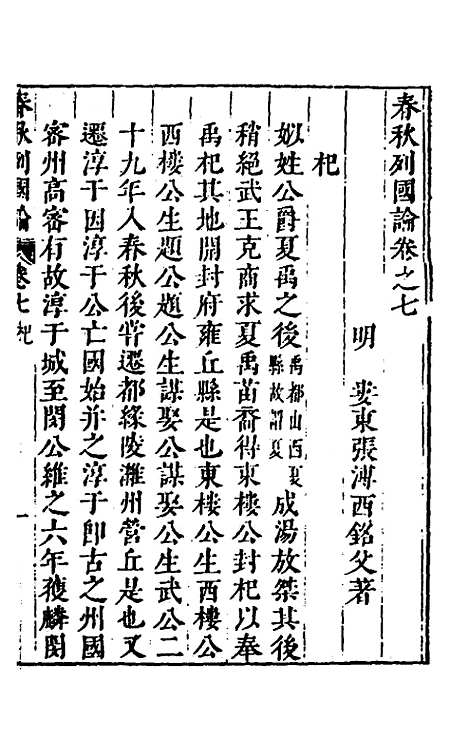 春秋列國論卷之七
明　婁東張溥西銘父著
杞
姒姓公爵夏禹之後禹都山西夏縣故謂夏成湯放桀其後
稍絕武王克商求夏禹苗裔得東樓公封杞以奉
禹杞其地開封府雍丘縣是也東樓公生西樓公
西樓公生題公題公生謀娶公謀娶公生武公二
十九年入春秋後嘗遷都緣陵濰州營丘是也又
遷淳于因淳于公亡國始并之淳于卽古之州國
密州高密有故淳于城至閔公維之六年獲麟閔
春秋列國論　卷七　杞　一